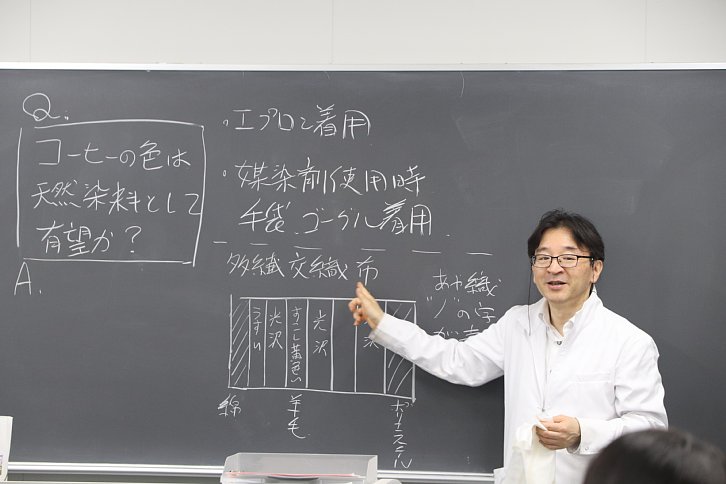 Q.
コーヒーの色は
天然染料として
有望か？
A.
・エプロン着用
・媒染剤使用時
手袋、ゴーグル着用
多繊交織布
うすい
光沢
すこし黄色い
光沢
沢
綿
羊毛
ポリエステル
あや織
"ノ"の字
が